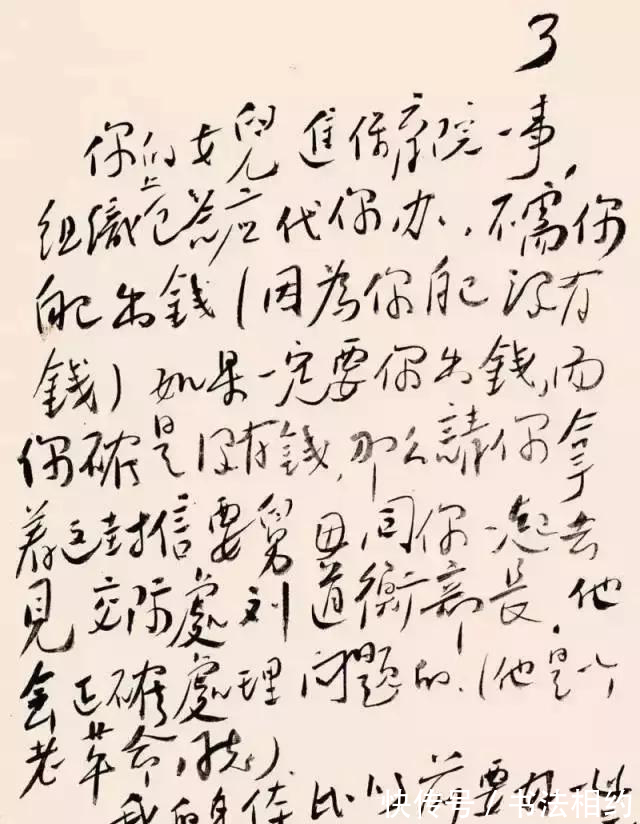 3
你的女兒進保育院一事,
組織上已答应代你办,不需你
自己出錢(因為你自己没有
錢)如果一定要你出錢,而
你確是没有錢,那么請你拿
着這封信要舅母同你一起去
見交际處刘道衡部長,他
会正確處理问題的,(他是个
老革命,
我的身体比以前要好一些
快传号/书法相约